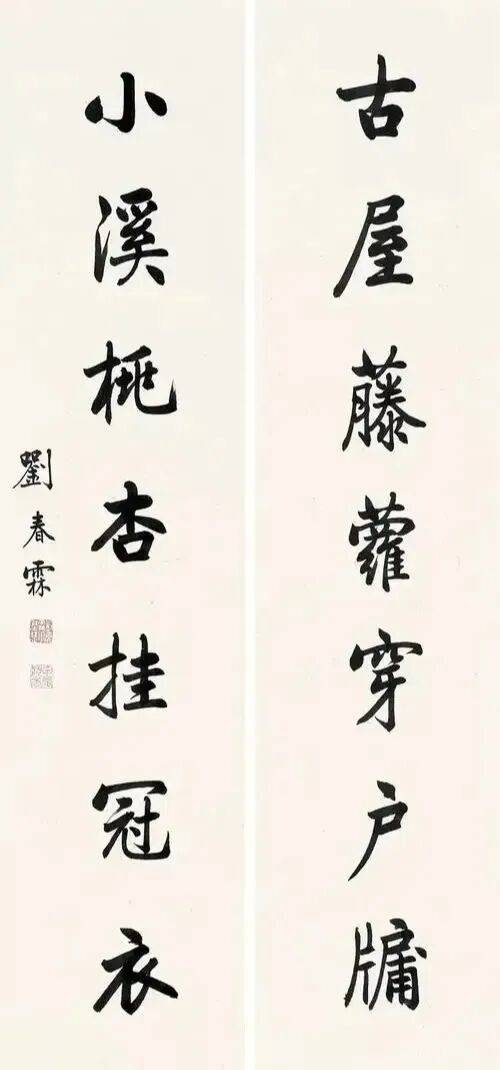 古屋藤蘿穿戶牖
小溪桃杏挂冠衣
劉春霖